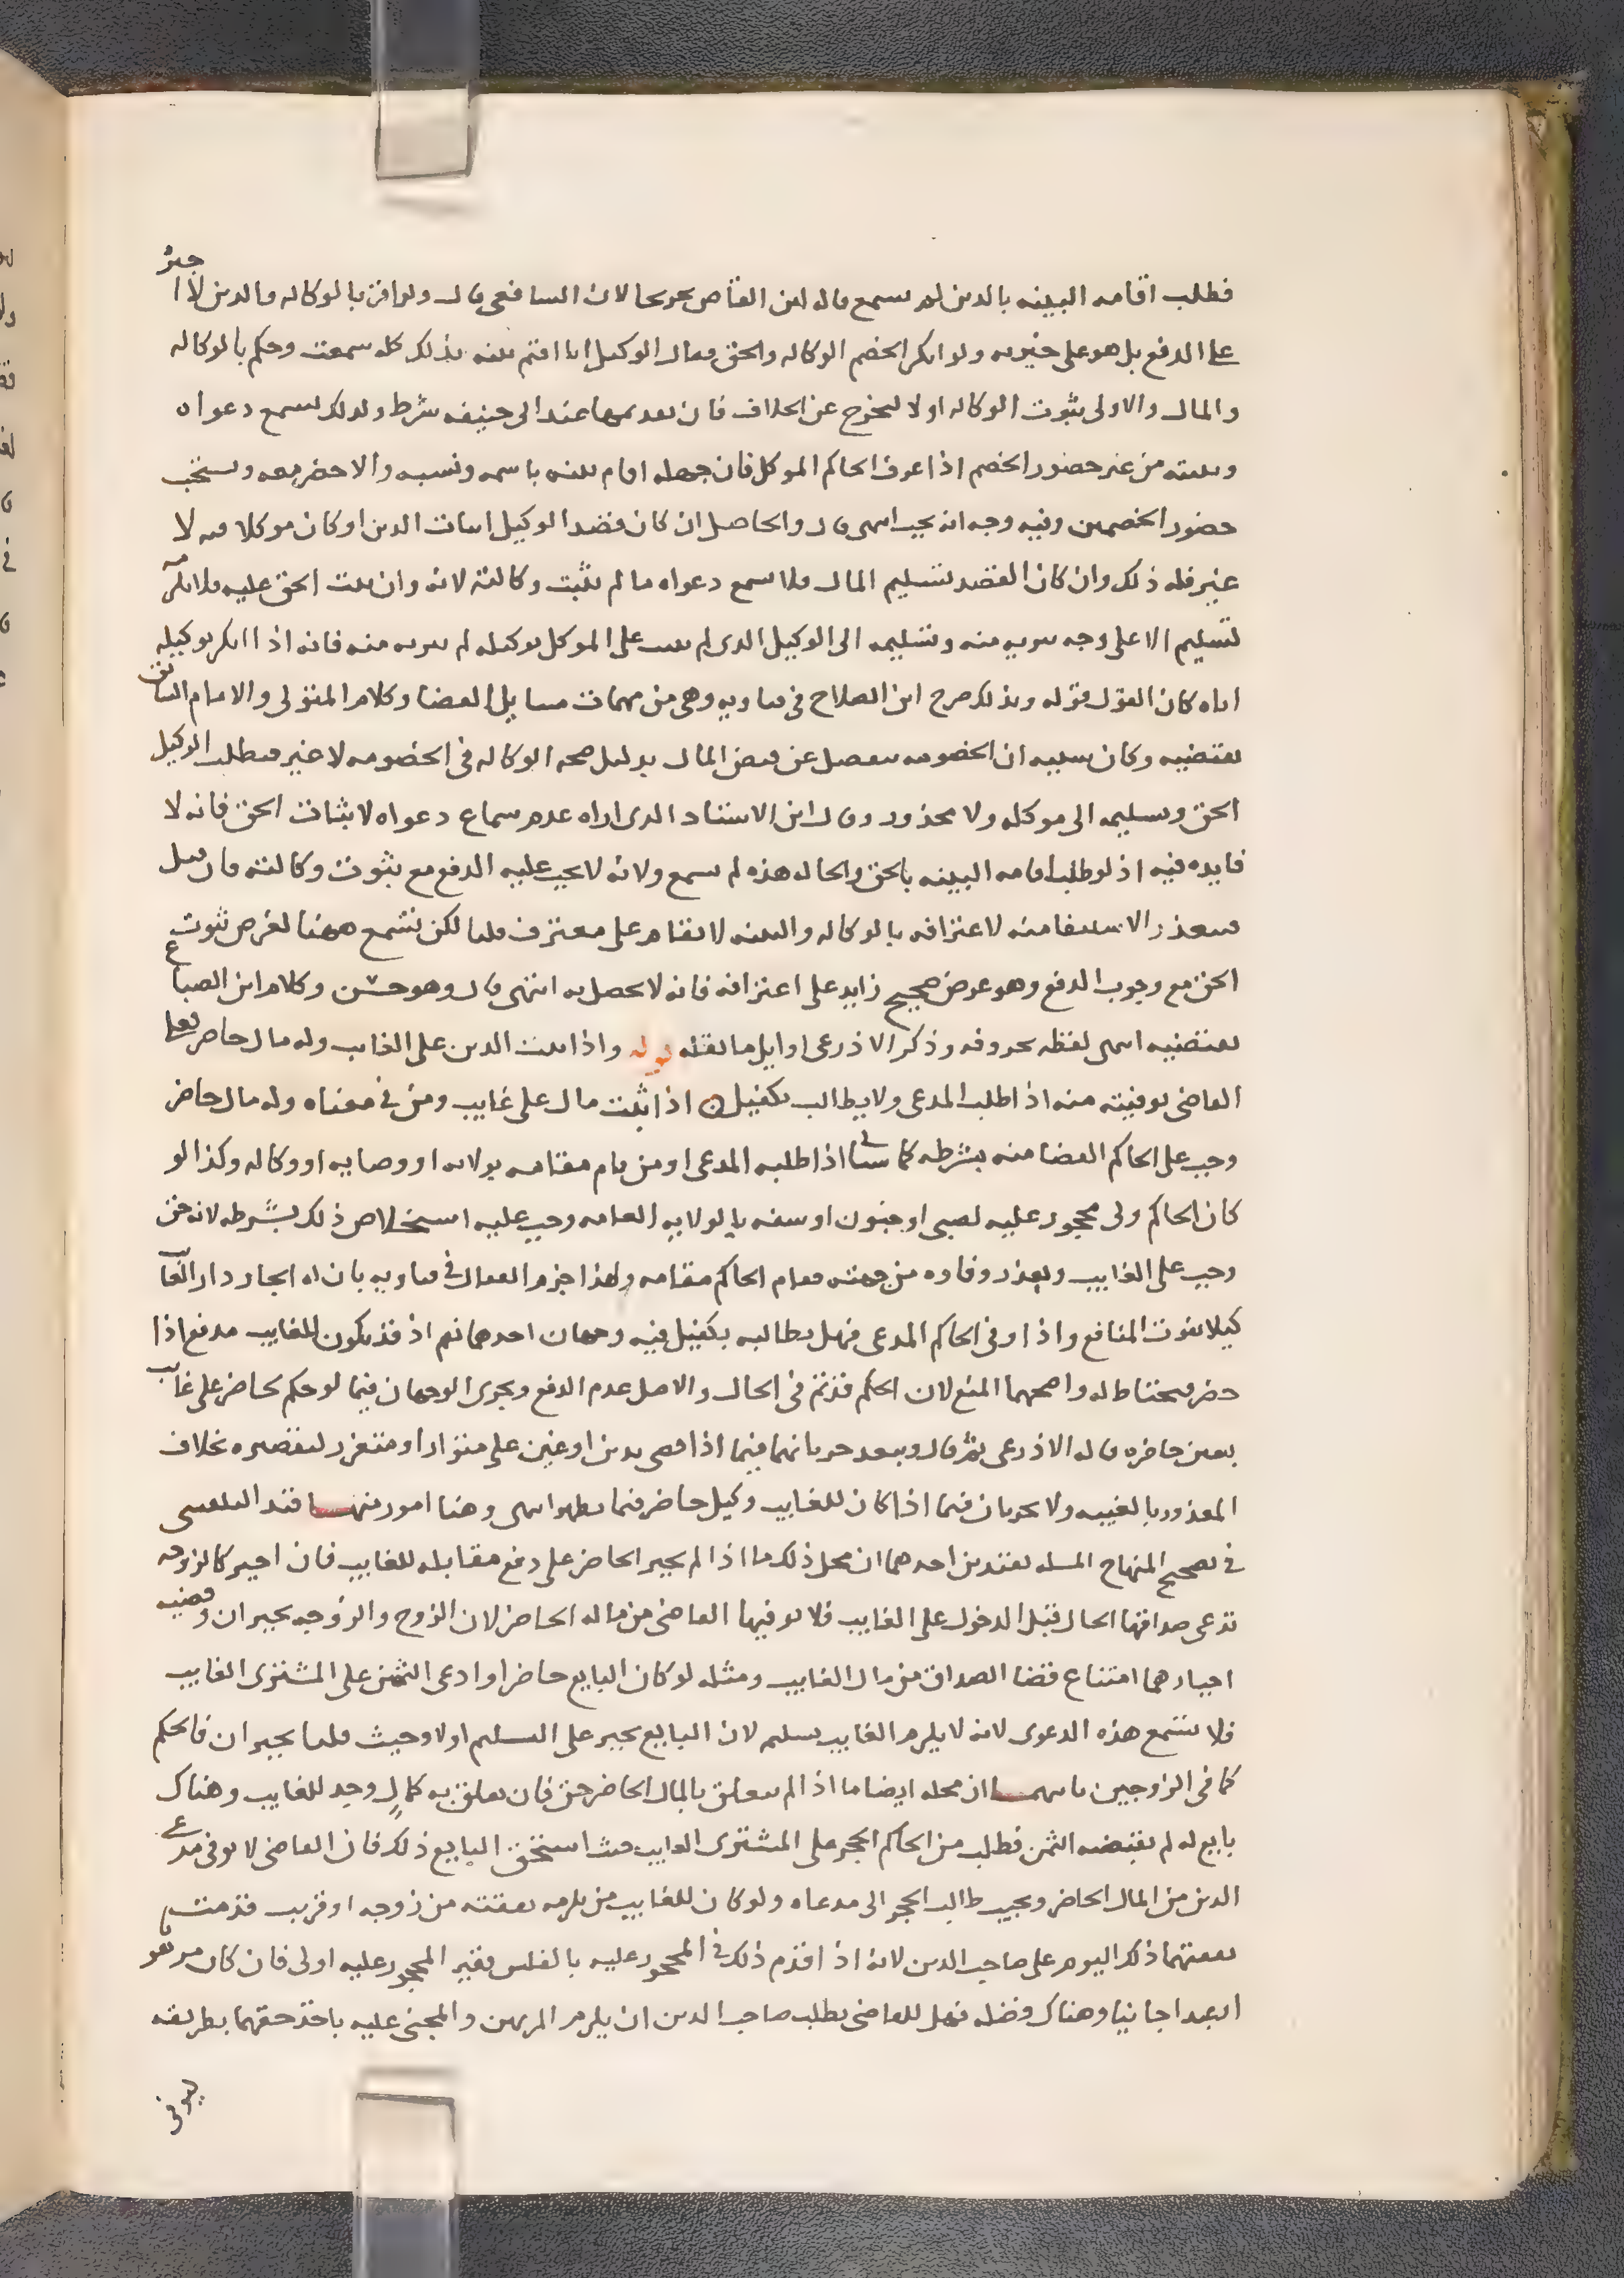 فطلب اقامه البينه بالدين لم يسمع قاله ابن القاص تخريجا لان الشافعي قال ولو اقر بالوكاله والدين لا اجبر
على الدفع بل هو على خيرته ولو انكر الخصم الوكاله والحق فقال الوكيل انا اقيم بينه بذلك كله سمعت وحكم بالوكاله
والمال والاولى بثبوت الوكاله اولا ليخرج عن الخلاف فان تقديمها عند ابي حنيفه شرط ولذلك تسمع دعواه
وبينته من غير حضور الخصم اذا عرف الحاكم الموكل فان جهله اقام بينه باسمه ونسبه والا حضر معه ويستحب
حضور الخصمين وفيه وجه انه يجب انتهى قال والحاصل ان كان قصد الوكيل اثبات الدين او كان موكلا فيه لا
غير فله ذلك وان كان القصد تسليم المال فلا تسمع دعواه ما لم تثبت وكالته لانه وان ثبت الحق عليه فلا يلزمه
تسليم الا على وجه يبريه منه وتسليمه الى الوكيل الذي لم يثبت على الموكل توكيله لم يبريه منه فانه اذا انكر توكيله
اياه كان القول قوله وبذلك صرح ابن الصلاح في فتاويه وهي من مهمات مسايل القضا وكلام المتولي والامام السابق
يقتضيه وكان سببه ان الخصومه تنفصل عن قبض المال بدليل صحه الوكاله في الخصومه لا غير فيطلب الوكيل
الحق وتسليمه الى موكله ولا محذور وقال ابن الاستاد الذي اراه عدم سماع دعواه لاثبات الحق فانه لا
فايده فيه اذ لو طلب اقامه البينه بالحق والحاله هذه لم تسمع ولانه لا يجب عليه الدفع مع ثبوت وكالته فان قيل
فيتعذر الاستيفا منه لاعترافه بالوكاله والبينه لا تقام على معترف قلنا لكن تسمع ههنا لغرض ثبوت
الحق مع وجوب الدفع وهو غرض صحيح زايد على اعترافه فانه لا يحصل به انتهى قال وهو حسن وكلام ابن الصباغ
يقتضيه انتهى لفظه بحروفه وذكر الاذرعي اوايل ما نقله قوله واذا ثبت الدين على الغايب وله مال حاضر فعلى
القاضي توفيته منه اذا طلب المدعي ولا يطالب بكفيل ن اذا ثبت مال على غايب ومن في معناه وله مال حاضر
وجب على الحاكم القضا منه بشرطه كما سياتي اذا طلبه المدعي او من قام مقامه بولايه او وصايه او وكاله وكذا لو
كان الحاكم ولي محجور عليه لصبي او جنون او سفه بالولايه العامه وجب عليه استخلاص ذلك بشرطه لانه حق
وجب على الغايب وتعذر وفاوه من جهته فقام الحاكم مقامه ولهذا جزم القفال في فتاويه بان له ايجار دار الغايب
كيلا تفوت المنافع واذا اوفى الحاكم المدعي فهل يطالبه بكفيل فيه وجهان احدهما نعم اذ قد يكون للغايب مدفع اذا
حضر فيحتاط له واصحهما المنع لان الحكم قد تم في الحال والاصل عدم الدفع ويجري الوجهان فيما لو حكم لحاضر على غايب
بعين حاضره قاله الاذرعي ثم قال ويبعد جريانهما فيما اذا قضى بدين او عين على متوار او متعزز لتقصيره بخلاف
المعذور بالغيبه ولا يجريان فيما اذا كان للغايب وكيل حاضر فيما يظهر انتهى وهنا امور منها قيد البلقيني
في تصحيح المنهاج المسله بقيدين احدهما ان محل ذلك ما اذا لم يجبر الحاضر على دفع مقابله للغايب فان اجبر كالزوجه
تدعي صداقها الحال قبل الدخول على الغايب فلا يوفيها القاضي من ماله الحاضر لان الزوج والزوجه يجبران وقضيه
اجبارهما امتناع قضا الصداق من مال الغايب ومثله لو كان البايع حاضرا وادعى الثمن على المشتري الغايب
فلا تسمع هذه الدعوى لانه لا يلزم الغايب تسليم لان البايع يجبر على التسليم اولا وحيث قلنا يجبران فالحكم
كما في الزوجين ثانيهما ان محله ايضا ما اذا لم يتعلق بالمال الحاضر حق فان تعلق به كمال وجد للغايب وهناك
بايع له لم يقبضه الثمن فطلب من الحاكم الحجر على المشتري الغايب حيث استحق البايع ذلك فان القاضي لا يوفي مدعي
الدين من المال الحاضر ويجيب طالب الحجر الى مدعاه ولو كان للغايب من يلزمه نفقته من زوجه او قريب قدمت
نفقتهما ذلك اليوم على صاحب الدين لانه اذا قدم ذلك في المحجور عليه بالفلس فغير المحجور عليه اولى فان كان مرهونا
العبد او جانيا وهناك فضله فهل للقاضي بطلب صاحب الدين ان يلزم المرتهن والمجني عليه باخذ حقهما بطريقه
ليوفى